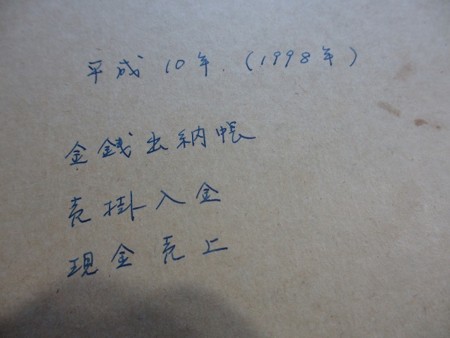 平成10年.(1998年)
金銭出納帳
売掛入金
現金売上